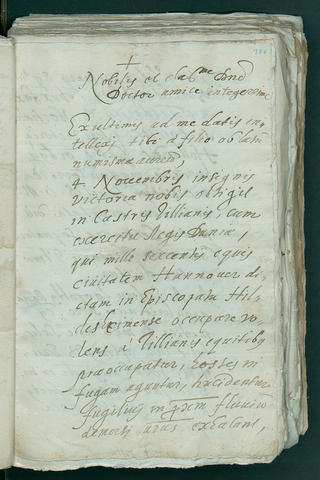 +
Nobilis et clar.me Dnd
Doctor amice integerrime
Ex ultimis ad me datis in-
tellexi tibi a filio oblatu
numisma aureum,
4 Novembris insignis
victoria nobis obtigit
in Castris Tillianis, cum
exercitu Regis Daniæ,
qui mille sexcentis equis
civitatem Hannover di-
ctam in Episcopatu Hil-
desheimense occupare vo-
lens a Tillianis equitibus
præoccupatur, hostes in
fugam aguntur, trucidentur
fugitivi in flumen